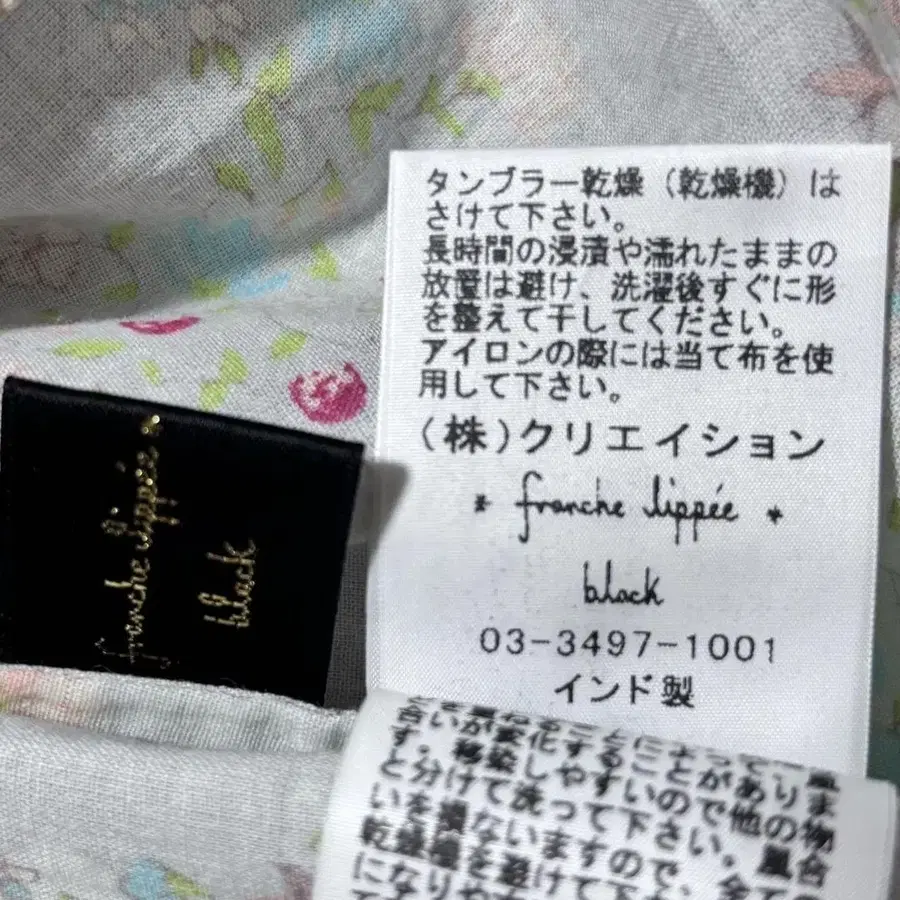 タンブラー乾燥(乾燥機)は
さけて下さい。
長時間の浸漬や濡れたままの
放置は避け、洗濯後すぐに形
を整えて干してください。
アイロンの際には当て布を使
用して下さい。
(株)クリエイション
* franche lippée *
black
03-3497-1001
インド製
franche lippée *
black
合いが変化することがありま
す。移染しやすいので他の物
と分けて洗って下さい。
いを損ないますので、
乾燥機を避けて下
になりや